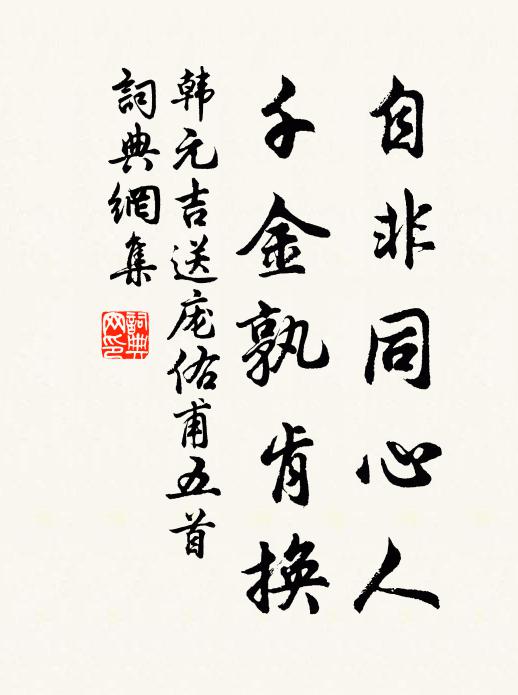 自非同心人
千金孰肯換
韩元吉送庞佑甫五首
詞典網集
詞典
网印